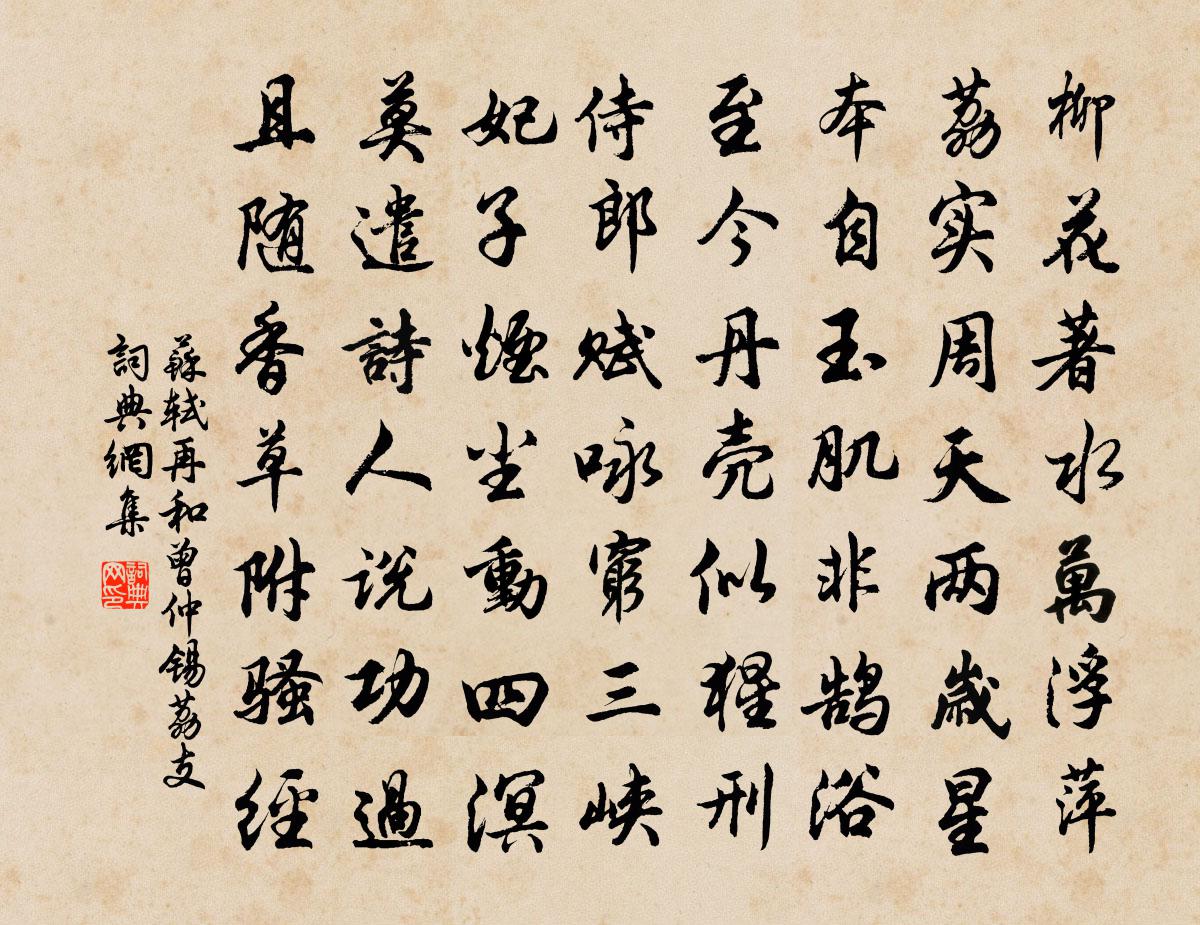 柳花著水萬浮萍
荔实周天两歲星
本自玉肌非鹄浴
至今丹壳似猩刑
侍郎赋咏窮三峡
妃子煙尘動四溟
莫遣詩人说功過
且随香草附骚经
蘇轼再和曾仲锡荔支
詞典網集
詞典网印